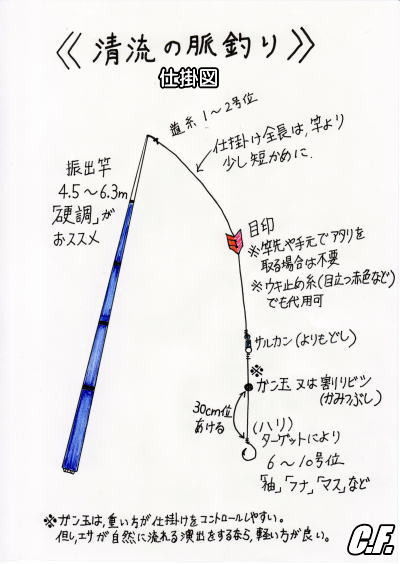 《清流の脈釣り》
仕掛図
道糸1〜2号位
仕掛け全長は、竿より
少し短かめに
振出竿
4.5〜6.3m
「硬調」が
おススメ
目印
※竿先や手元でアタリを
取る場合は不要
※ウキ止め糸(目立つ赤色など)
でも代用可
サルカン(よりもどし)
※
ガン玉 又は 割りビシ
(かみつぶし)
30cm位
あける
(ハリ)
ターゲットにより
6〜10号位
「袖」「フナ」「マス」など
※ガン玉は、重い方が仕掛けをコントロールしやすい。
但し、エサが自然に流れる演出をするなら、軽い方が良い。
C.F.